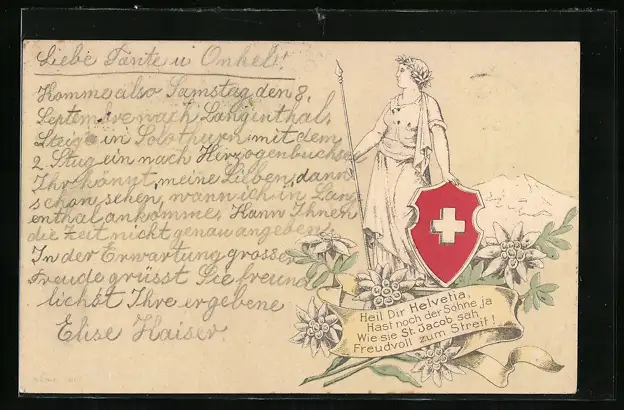 Liebe Tante u Onkel!
Komme also Samstag den 8.
September nach Langinthal,
Steige in Solothurn mit dem
2 Stug ein nach Herzogenbuchse
Ihr könnt, meine Lieben, dann
schon sehen, wann ich in Lang
enthal ankomme, Kann Ihnen
die Zeit nicht genau angeben,
In der Erwartung grosser
Freude grüsst Sie freund
lichst Ihre ergebene
Elise Kaiser.
Heil Dir Helvetia,
Hast noch der Söhne ja
Wie sie St. Jacob sah,
Freudvoll zum Streit!